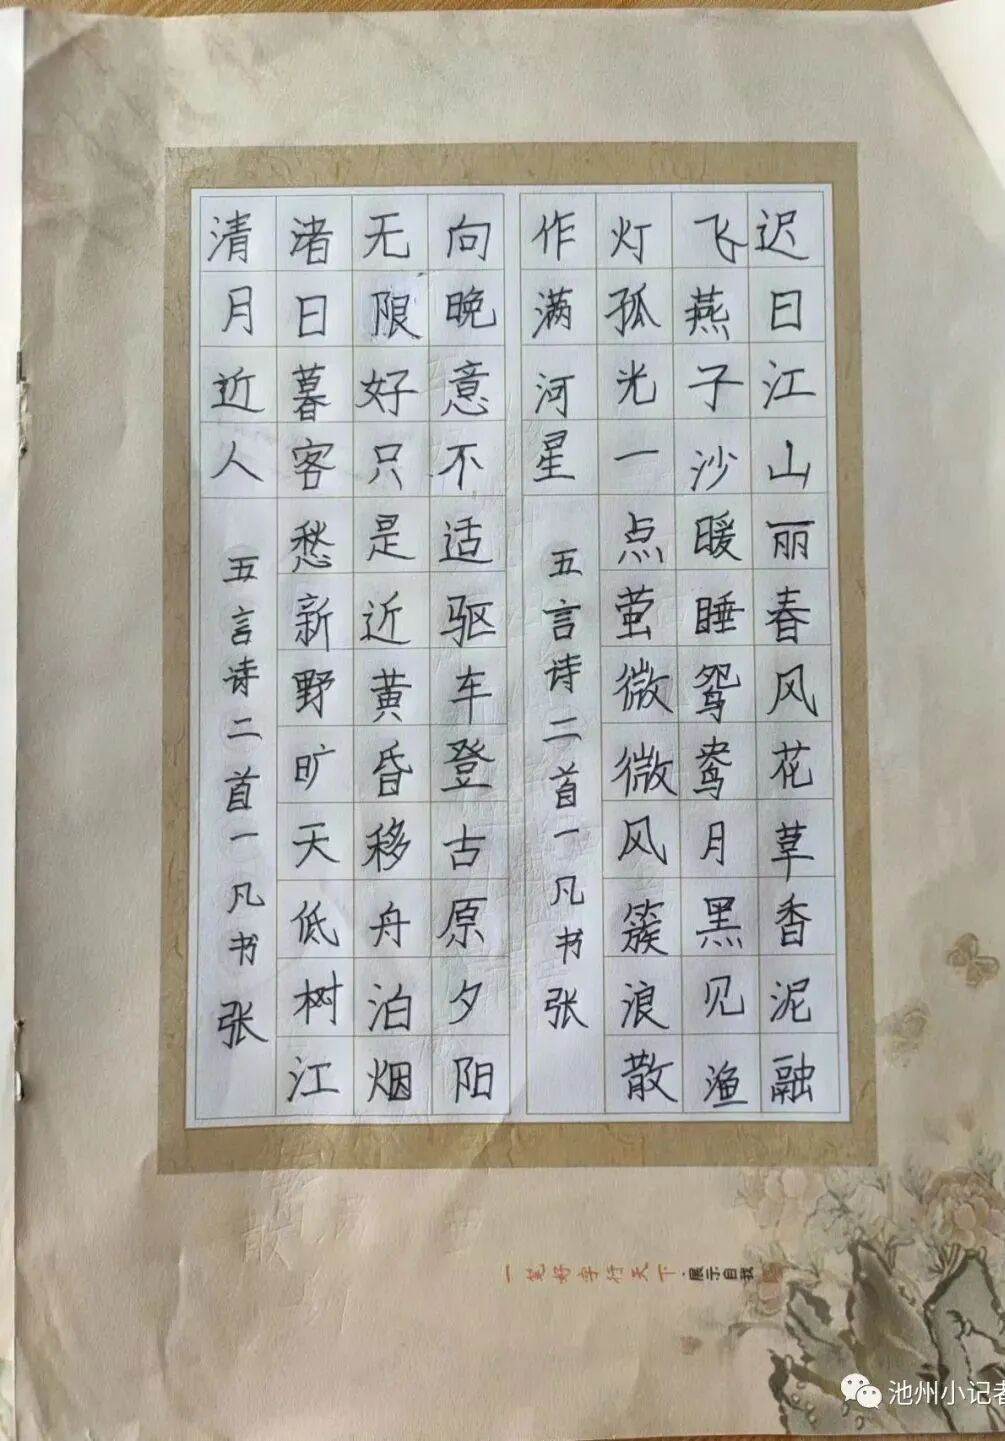 迟日江山丽春风花草香泥融
飞燕子沙暖睡鸳鸯月黑见渔
灯孤光一点萤微微风簇浪散
作满河星
五言诗二首一凡书 张
向晚意不适驱车登古原夕阳
无限好只是近黄昏移舟泊烟
渚日暮客愁新野旷天低树江
清月近人
五言诗二首一凡书 张
一笔好字行天下·展示自我
池州小记者